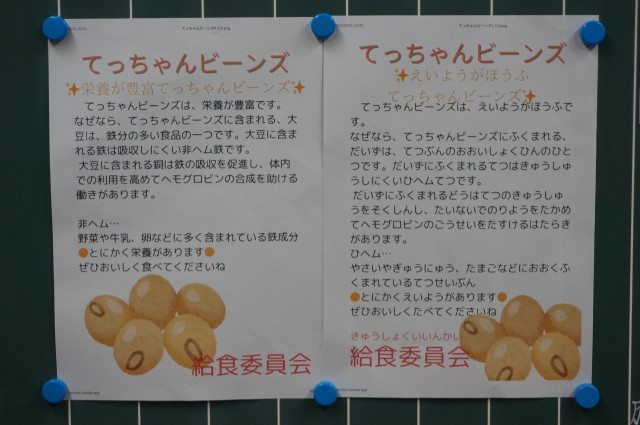 てっちゃんビーンズ
✨栄養が豊富てっちゃんビーンズ✨
てっちゃんビーンズは、栄養が豊富です。
なぜなら、てっちゃんビーンズに含まれる、大
豆は、鉄分の多い食品の一つです。大豆に含ま
れる鉄は吸収しにくい非ヘム鉄です。
大豆に含まれる銅は鉄の吸収を促進し、体内
での利用を高めてヘモグロビンの合成を助ける
働きがあります。
非ヘム…
野菜や牛乳、卵などに多く含まれている鉄成分
●とにかく栄養があります●
ぜひおいしく食べてくださいね
給食委員会
てっちゃんビーンズ
✨えいようがほうふ
てっちゃんビーンズ✨
てっちゃんビーンズは、えいようがほうふで
す。
なぜなら、てっちゃんビーンズにふくまれる、
だいずは、てつぶんのおおいしょくひんのひと
つです。だいずにふくまれるてつはきゅうしゅ
うしにくいひヘムてつです。
だいずにふくまれるどうはてつのきゅうしゅ
うをそくしんし、たいないでのりようをたかめ
てヘモグロビンのごうせいをたすけるはたらき
があります。
ひヘム…
やさいやぎゅうにゅう、たまごなどにおおくふ
くまれているてつせいぶん
●とにかくえいようがあります●
ぜひおいしくたべてくださいね
きゅうしょくいいんかい
給食委員会